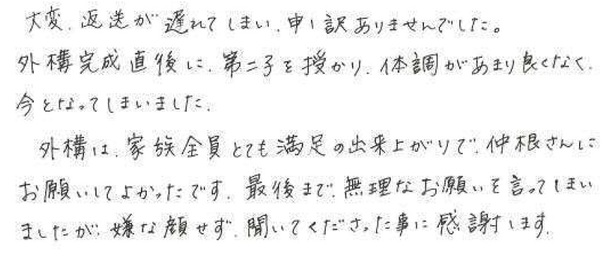 大変、返送が遅れてしまい、申し訳ありませんでした。
外構完成直後に、第二子を授かり、体調があまり良くなく、
今となってしまいました、
外構は、家族全員とても満足の出来上がりで、仲根さんに
お願いしてよかったです、最後まで、無理なお願いを言ってしまい
ましたが、嫌な顔せず、聞いてくださった事に感謝します、